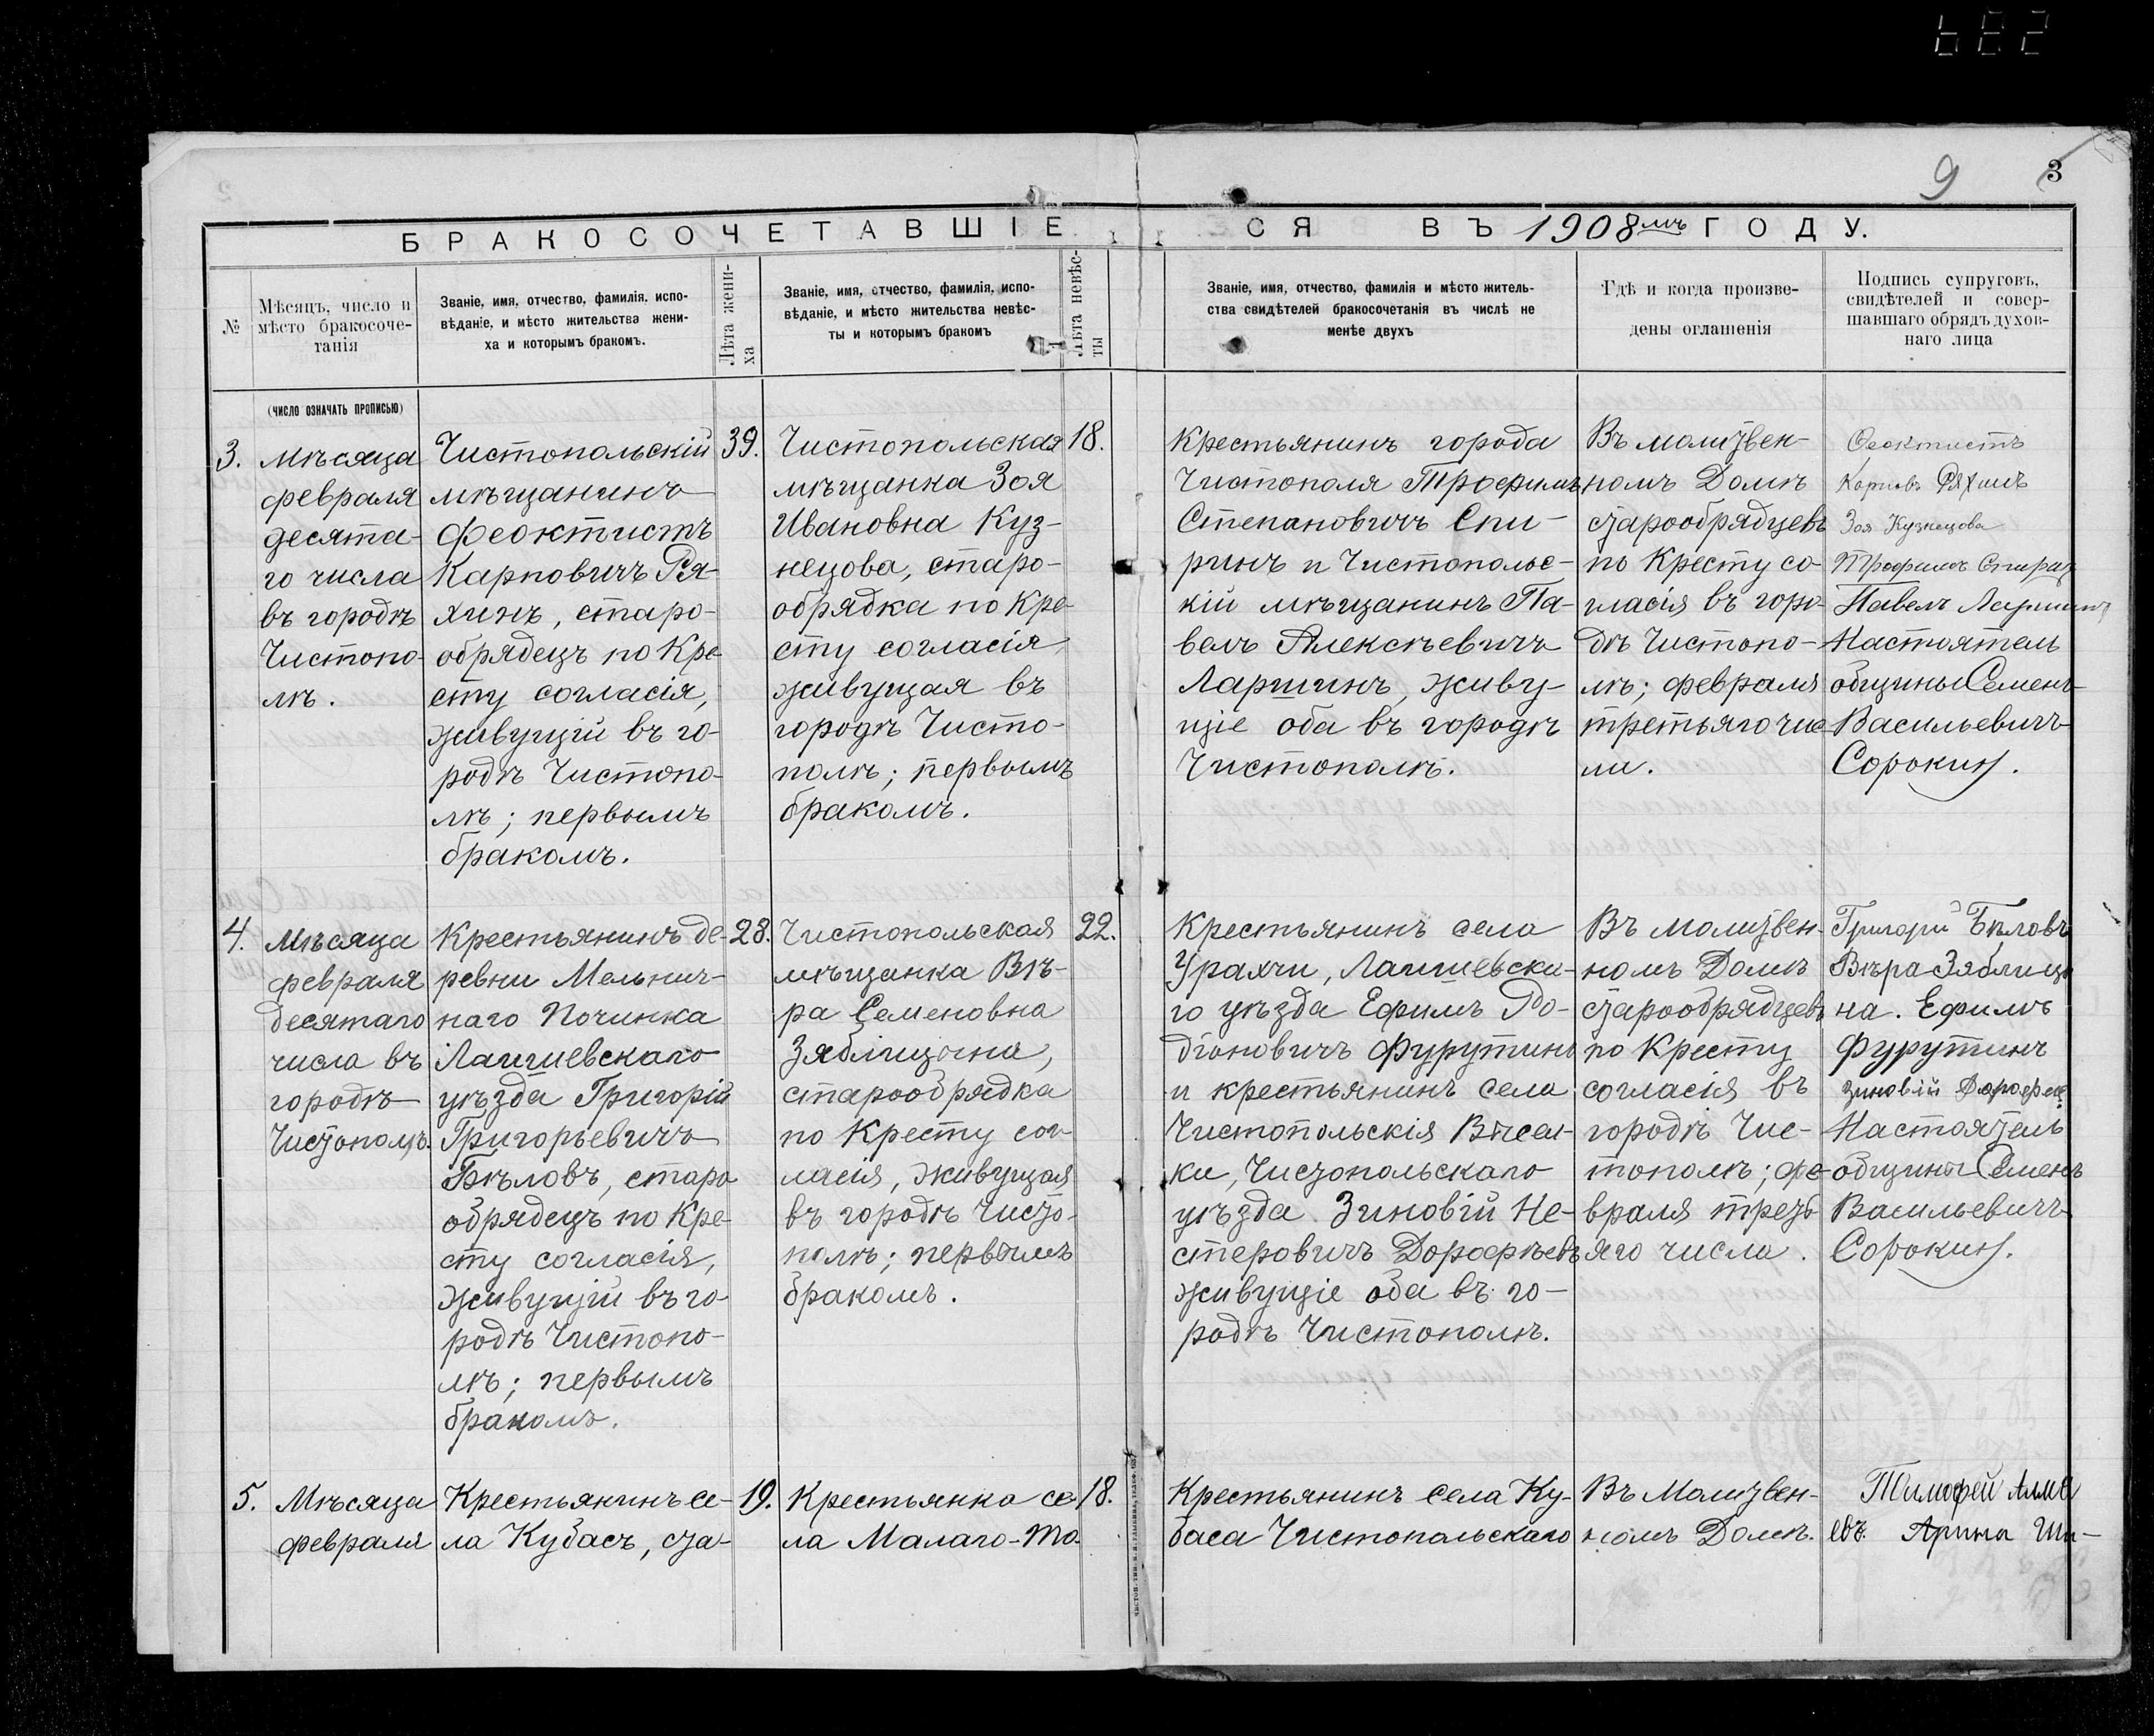 9 3
БРАКОСОЧЕТАВШІЕСЯ ВЪ 1908мъ ГОДУ.
№
Мѣсяцъ, число и
мѣсто бракосоче-
танія
Званіе, имя, отчество, фамилія, испо-
вѣданіе, и мѣсто жительства жени-
ха и которымъ бракомъ.
Лѣта жени-
ха
Званіе, имя, отчество, фамилія, испо-
вѣданіе, и мѣсто жительства невѣс-
ты и которымъ бракомъ
Лѣта невѣс-
ты
Званіе, имя, отчество, фамилія и мѣсто житель-
ства свидѣтелей бракосочетанія въ числѣ не
менѣе двухъ
Гдѣ и когда произве-
дены оглашенія
Подпись супруговъ,
свидѣтелей и совер-
шавшаго обрядъ духов-
наго лица
(число означать прописью)
3.
Мѣсяца
февраля
десята-
го числа
въ городѣ
Чистопо-
лѣ.
Чистопольскій
мѣщанинъ
Феоктистъ
Карповичъ Ря-
хинъ, старо-
обрядецъ по Кре-
сту согласія,
живущій въ го-
родѣ Чистопо-
лѣ; первымъ
бракомъ.
39.
Чистопольская
мѣщанка Зоя
Ивановна Куз-
нецова, старо-
обрядка по Кре-
сту согласія,
живущая въ
городѣ Чисто-
полѣ; первымъ
бракомъ.
18.
Крестьянинъ города
Чистополя Трофимъ
Степановичъ Спи-
ринъ и Чистопольс-
кій мѣщанинъ Па-
велъ Алексѣевичъ
Ларшинъ, живу-
щіе оба въ городѣ
Чистополѣ.
Въ молитвен-
номъ Домѣ
старообрядцевъ
по Кресту со-
гласія въ горо-
дѣ Чистопо-
лѣ; февраля
третьяго чис-
ла.
Феоктистъ
Карповъ Ряхинъ
Зоя Кузнецова
Трофимъ Спирин
Павелъ Ларшинъ
Настоятель
общины Семенъ
Васильевичъ
Сорокин.
4.
Мѣсяца
февраля
десятаго
числа въ
городѣ
Чистополѣ.
Крестьянинъ де-
ревни Мельнич-
наго Починка
Лаишевскаго
уѣзда Григорій
Григорьевичъ
Бѣловъ, старо
обрядецъ по Кре-
сту согласія,
живущій въ го-
родѣ Чистопо-
лѣ; первымъ
бракомъ.
28.
Чистопольская
мѣщанка Вѣ-
ра Семеновна
Зяблицына,
старообрядка
по Кресту сог-
ласія, живущая
въ городѣ Чисто-
полѣ; первымъ
бракомъ.
22.
Крестьянинъ села
Урахчи, Лаишевска-
го уѣзда Ефимъ Ро-
діоновичъ Фурутинъ
и крестьянинъ села
Чистопольскія Высел-
ки, Чистопольскаго
уѣзда Зиновій Не-
стеровичъ Дорофѣевъ
живущіе оба въ го-
родѣ Чистополѣ.
Въ молитвен-
номъ Домѣ
старообрядцевъ
по Кресту
согласія въ
городѣ Чис-
тополѣ; фе-
враля треть-
яго числа.
Григорій Бѣловъ
Вѣра Зяблицы
на. Ефимъ
Фурутинъ
Зиновій Дорофее
Настоятель
общины Семенъ
Васильевичъ
Сорокин.
5.
Мѣсяца
февраля
Крестьянинъ се-
ла Кубасъ, ста-
19.
Крестьянка се-
ла Малаго-То-
18.
Крестьянинъ села Ку-
баса Чистопольскаго
Въ Молитвен-
номъ Домѣ.
Тимофей
евъ Арина Ши-